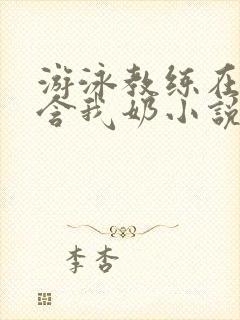 游泳教练在
含我奶小说
李杏